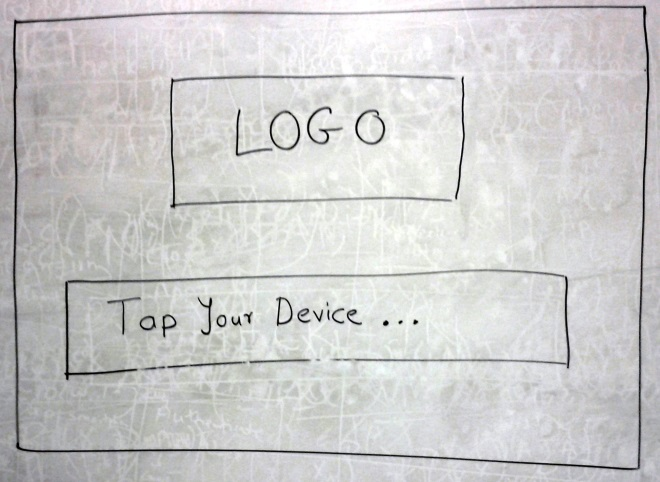 LOGO
Tap Your Device ...